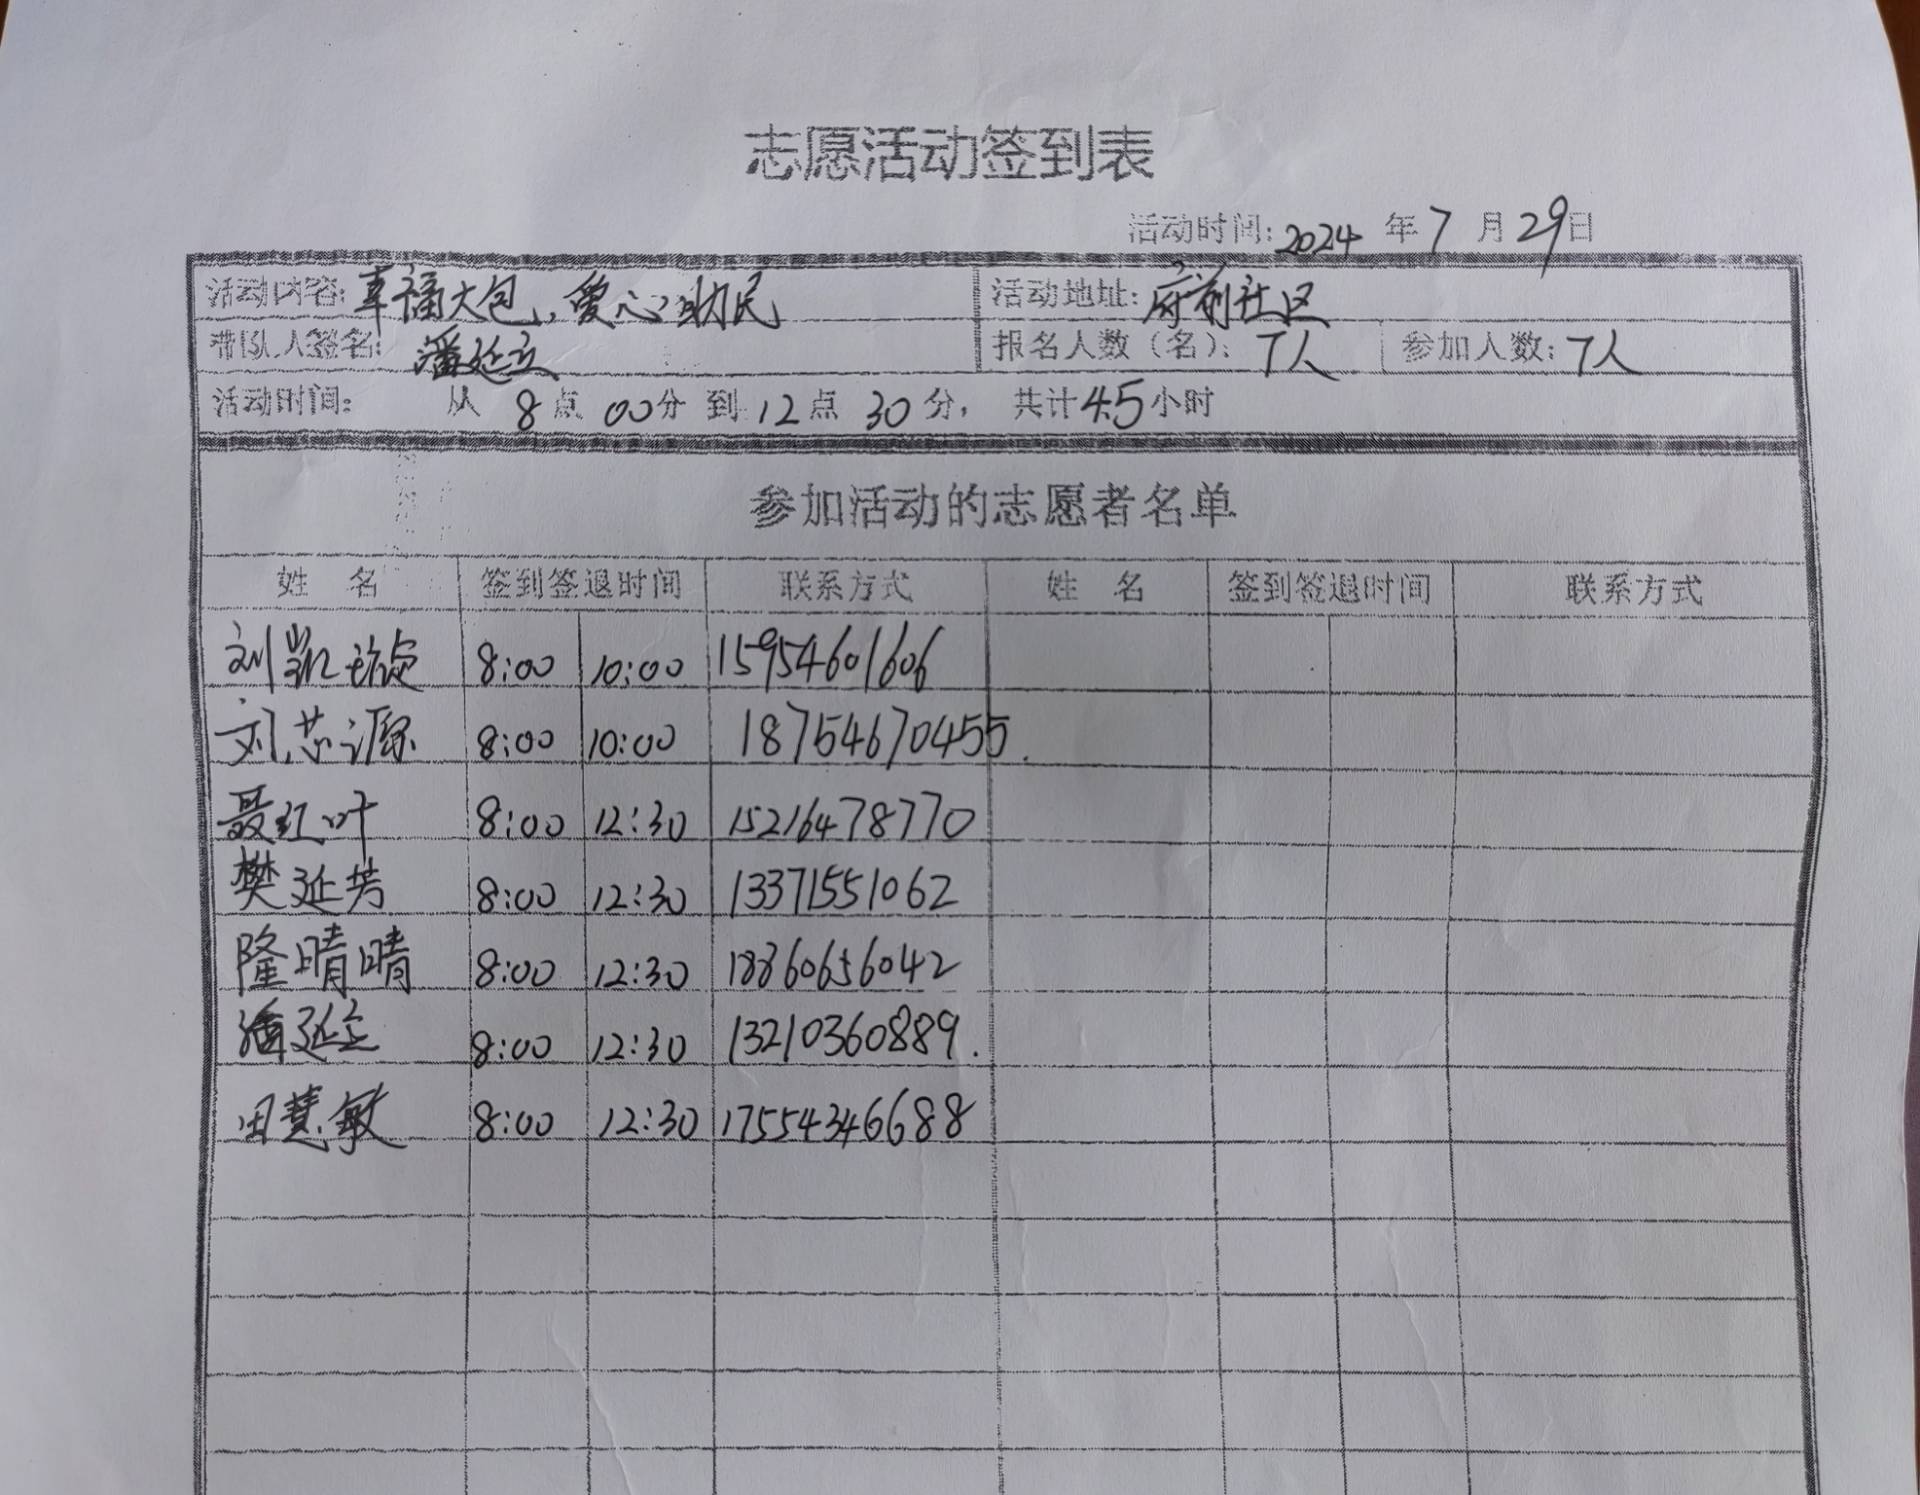 志愿活动签到表
活动时间: 2024 年 7 月 29日
活动内容: 幸福大包、爱心助民 活动地址: 府前社区
带队人签名: 潘延立 报名人数（名）: 7人 参加人数: 7人
活动时间: 从 8 点 00分 到 12 点 30 分, 共计 4.5 小时
参加活动的志愿者名单
姓 名 签到签退时间 联系方式 姓 名 签到签退时间 联系方式
刘凯旋 8:00 10:00 15954601606
刘芯源 8:00 10:00 18754670455
聂红叶 8:00 12:30 15216478770
樊延芳 8:00 12:30 13371551062
隆晴晴 8:00 12:30 18860656042
潘延立 8:00 12:30 13210360889.
田慧敏 8:00 12:30 17554346688